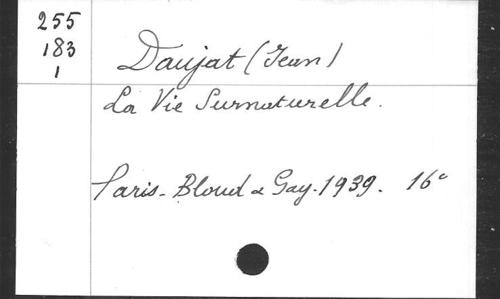 255
183
1
Daujat (Jean)
La Vie Surnaturelle.
Paris - Bloud & Gay - 1939. 16°